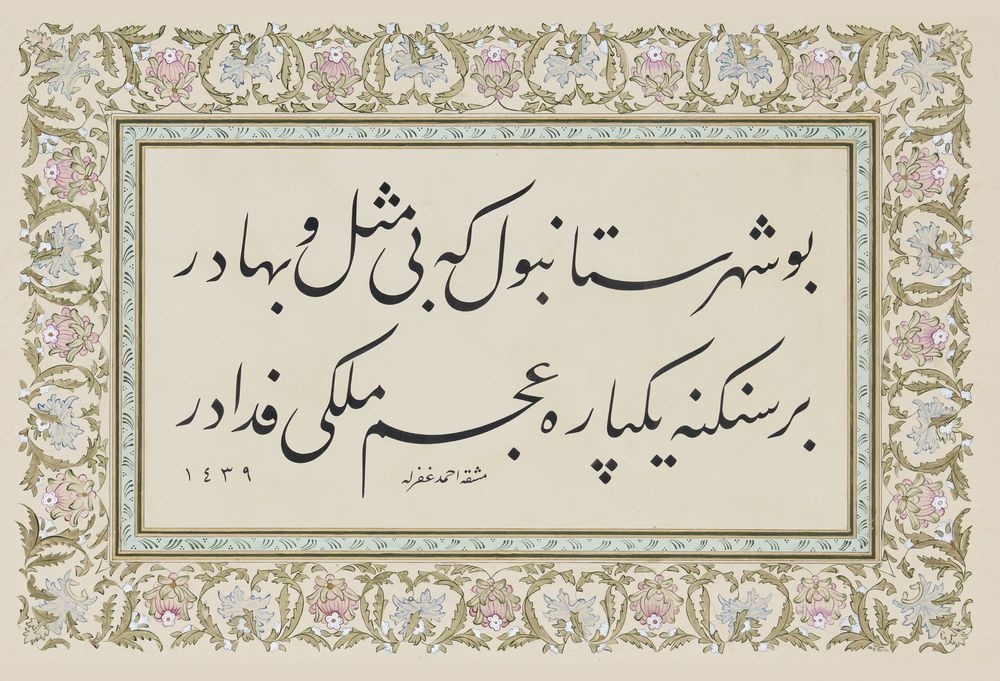 بو شهر ستانبول که بی مثل و بهادر
بر سنکنه یکپاره عجم ملکی فدادر
مشقه احمد غفرله
١٤٣٩